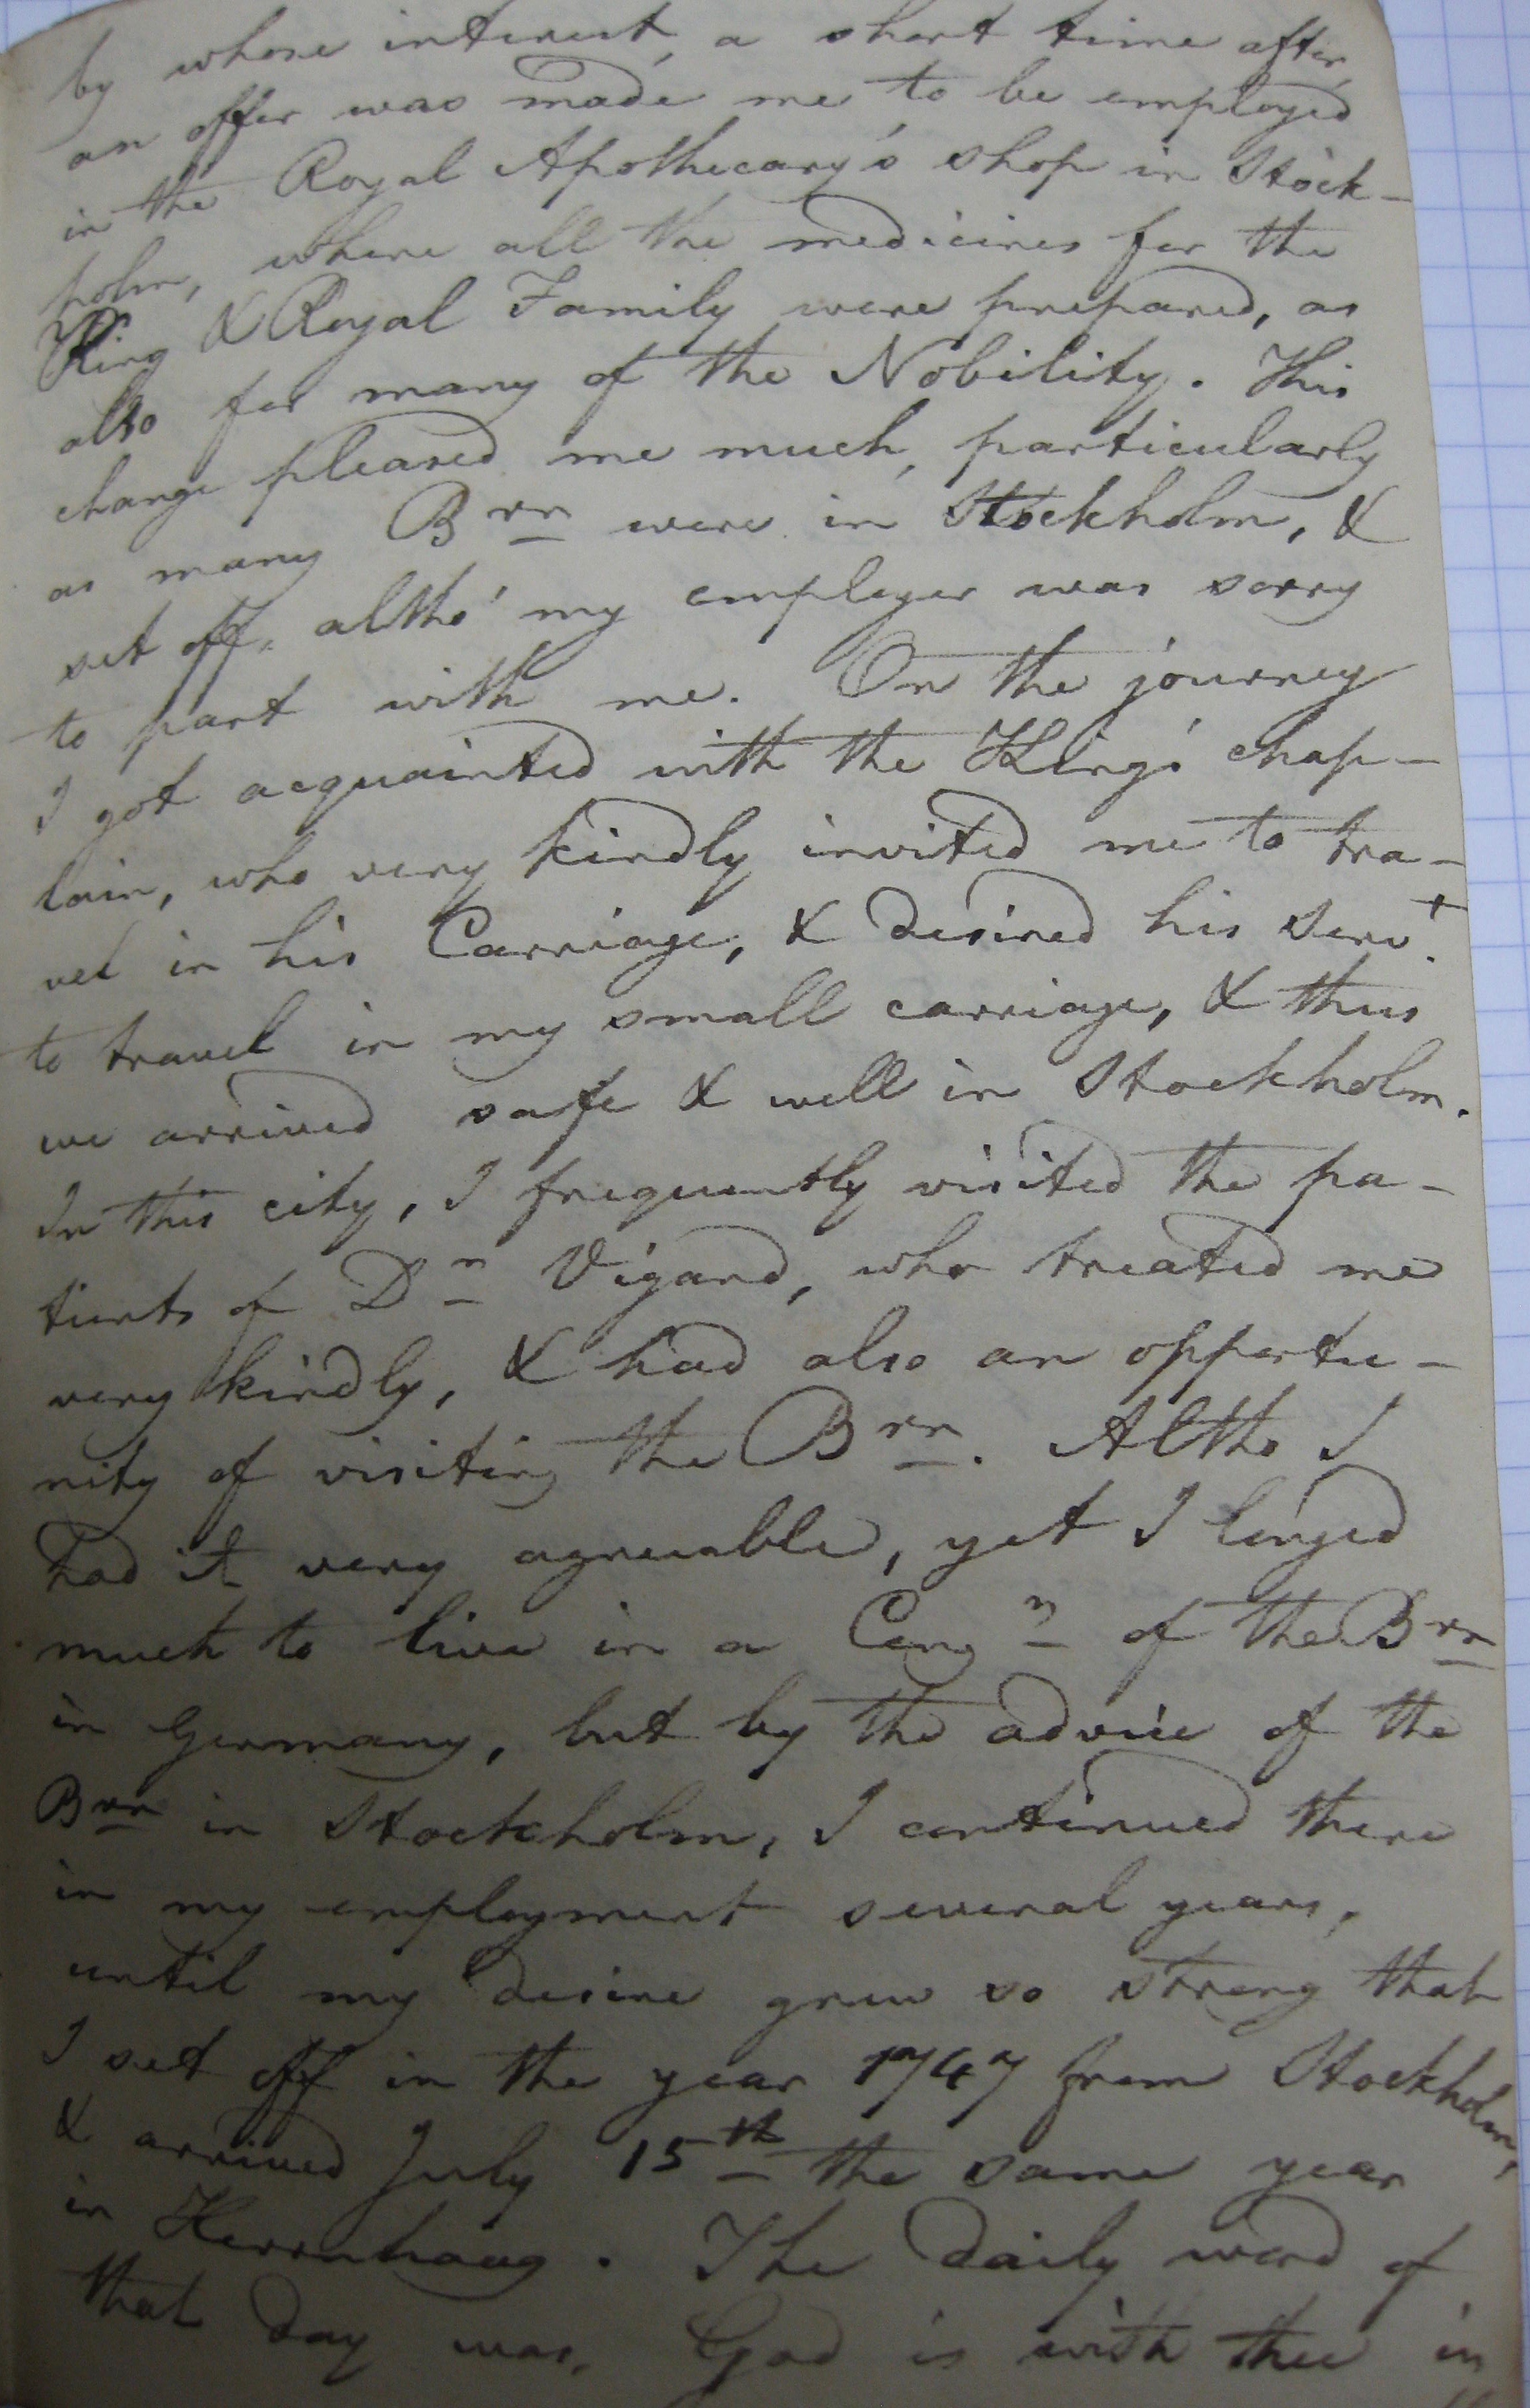 by whose interest, a short time after,
an offer was made me to be employed
in the Royal Apothecary's shop in Stock-
holm, where all the medicines for the
King & Royal Family were prepared, as
also for many of the Nobility. This
change pleased me much, particularly
as many Brn were in Stockholm, &
set off, altho' my employer was sorry
to part with me. On the journey
I got acquainted with the King's chap-
lain, who very kindly invited me to tra-
vel in his Carriage, & desired his servt.
to travel in my small carriage, & thus
we arrived safe & well in Stockholm.
In this city, I frequently visited the pa-
tients of Dr Vigand, who treated me
very kindly, & had also an opportu-
nity of visiting the Brn. Altho I
had it very agreeable, yet I longed
much to live in a Congn of the Brn
in Germany, but by the advice of the
Brn in Stockholm, I continued there
in my employment several years,
until my desire grew so strong that
I set off in the year 1747 from Stockholm,
& arrived July 15th the same year
in Herrnhaag. The daily word of
that day was, God is with thee in